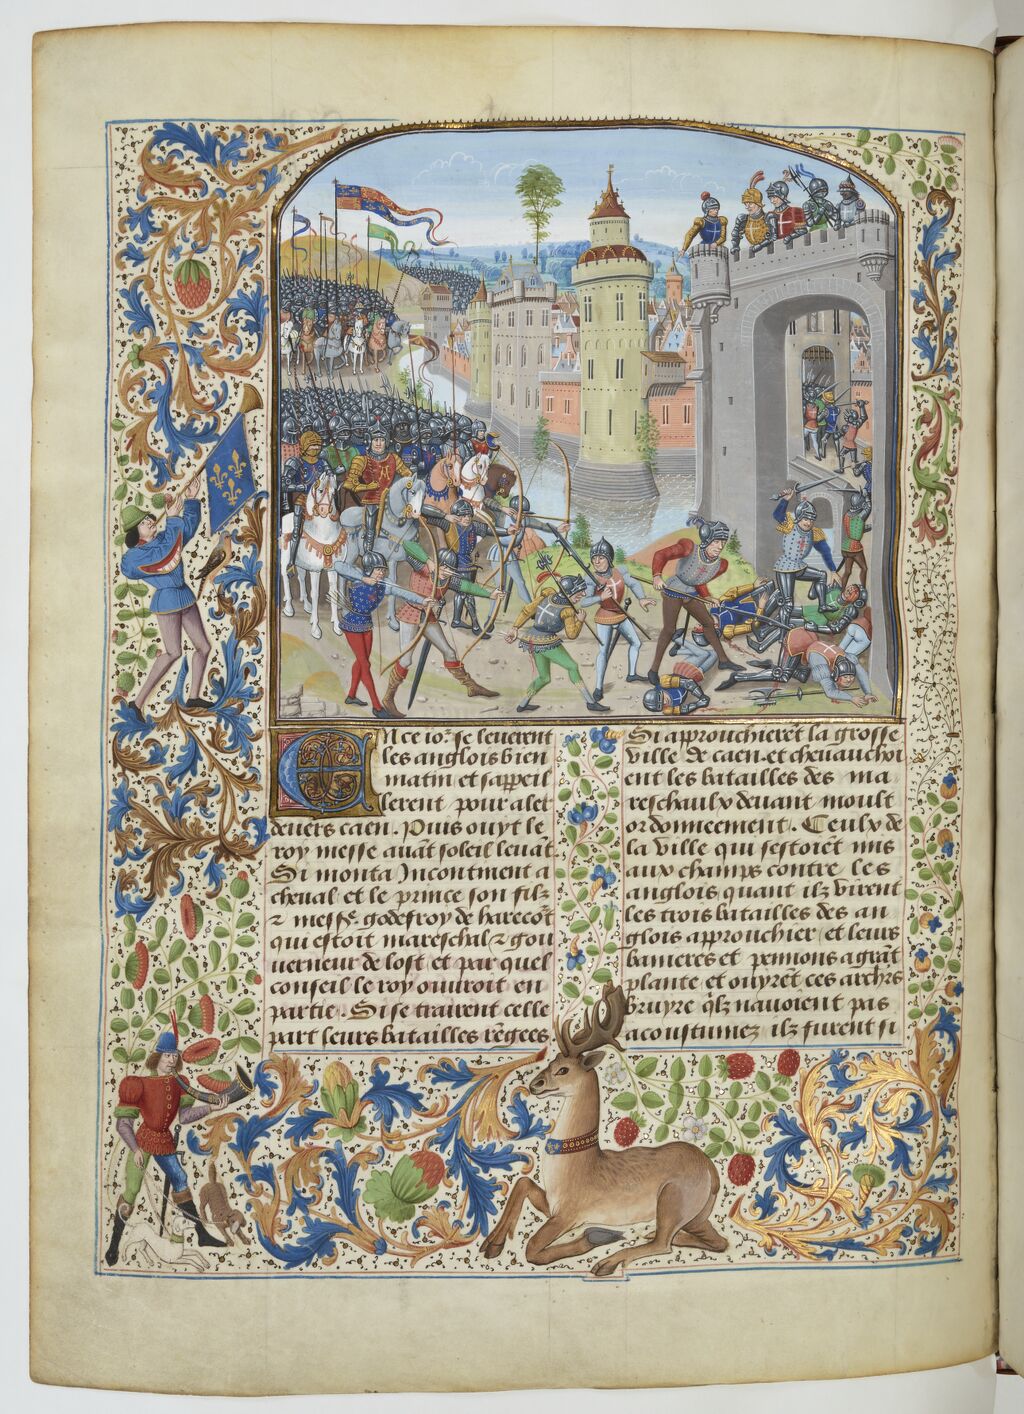 En ce ior se leuerent
les anglois bien
matin et sappeil
lerent pour aler
deuers caen. Puis ouyt le
roy messe auāt soleil leuāt.
Si monta Incontinent a
cheual et le prince son filz
⁊ messe godefroy de harecot
qui estoit mareschal ⁊ gou
uerneur de lost et par quel
conseil le roy ouuroit en
partie. Si se trairent celle
part leurs batailles rēgees
Si approuchierēt la grosse
ville de caen. et cheuauchoi
ent les batailles des ma
reschaulx deuant moult
ordonneement. Ceulx de
la ville qui sestoiēt mis
aux champs contre les
anglois quant ilz virent
les trois batailles des an
glois approuchier et leurs
banieres et pennons a grāt
plante et ouyrēt ces archrs
bruyre qlz nauoient pas
acoustumez ilz furent si